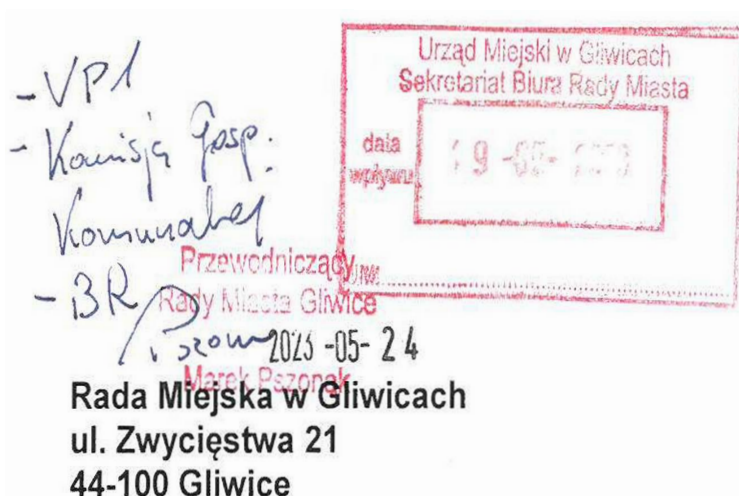 - VP1
- Komisja Gosp.
Komunalnej
- BR
Urząd Miejski w Gliwicach
Sekretariat Biura Rady Miasta
data
wpływu
Przewodniczący
Rady Miasta Gliwice
2023 -05- 24
Marek Pszonak
Rada Miejska w Gliwicach
ul. Zwycięstwa 21
44-100 Gliwice